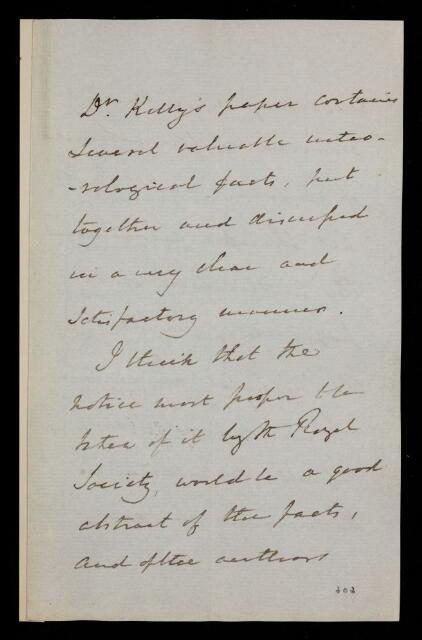 Dr. Kelly's paper contains
several valuable meteo-
-rological facts, put
together and discussed
in a very clear and
satisfactory manner.
I think that the
notice most proper to be
taken of it by the Royal
Society, would be a good
abstract of the facts,
and of the authors
202